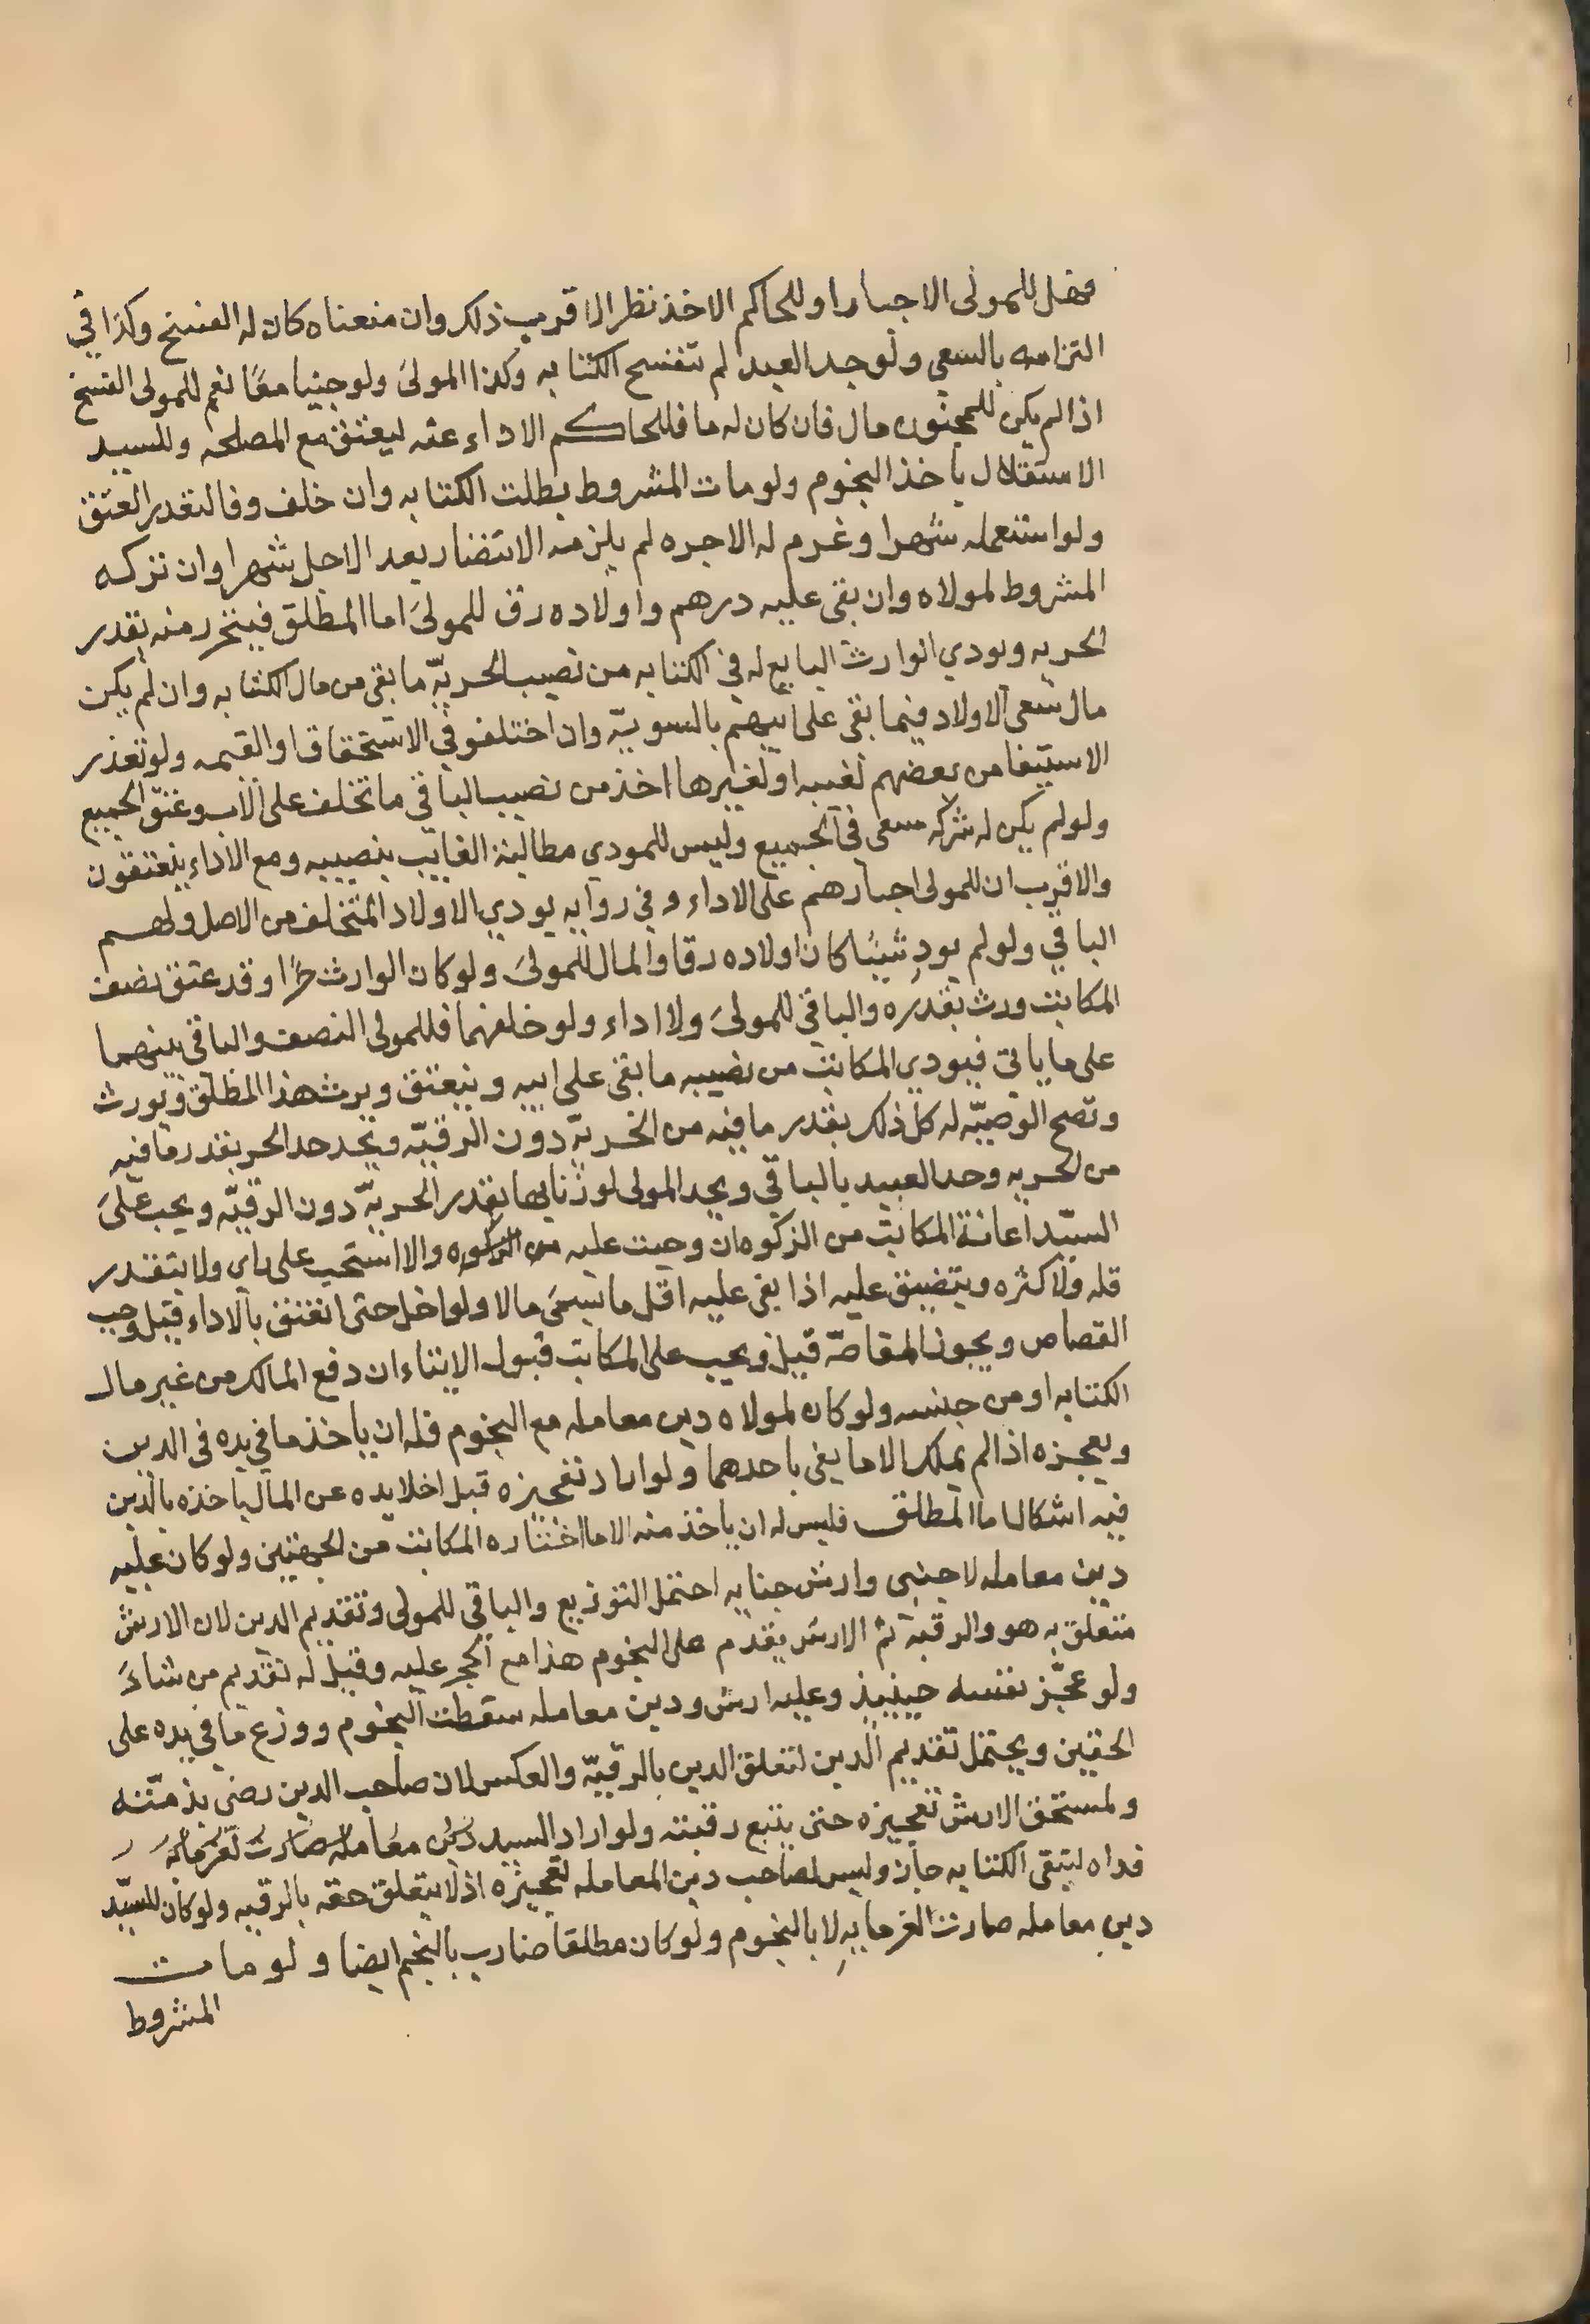 فهل للمولى الاجبار او للحاكم الاخذ نظر الاقرب ذلك وان منعناه كان له الفسخ وكذا في
التزامه بالسعي ولو جن العبد لم تنفسح الكتابه وكذا المولىَ ولو جنيا معًا نعم للمولى الفسخ
اذا لم يكن للمجنون مال فان كان له ما فللحاكم الاداء عنه ليعتق مع المصلحه وللسيد
الاستقلال باخذ النجوم ولو مات المشروط بطلت الكتابه وان خلف وفا لتعذر العتق
ولو استعمله شهرا وغرم له الاجره لم يلزمه الانتضار بعد الاجل شهرا وان تركه
المشروط لمولاه وان بقى عليه درهم واولاده رق للمولىَ اما المطلق فيتحرر منه بقدر
الحريه ويودي الوارث التابع له في الكتابه من نصيب الحريّه ما بقى من مال الكتابه وان لم يكن
مال سعى الاولاد فيما بقى على ابيهم بالسويّه وان اختلفو في الاستحقاق او القيمه ولو تعذر
الاستيفا من بعضهم لغيبه او لغيرها اخذ من نصيب الباقي ما تخلف على الاب وعتق الجميع
ولو لم يكن له شركه سعى في الجميع وليس للمودي مطالبة الغايب بنصيبه ومع الاداء ينعتقون
والاقرب ان للمولى اجبارهم على الاداء وفي روايه يودي الاولاد المتخلف من الاصل ولهم
الباقي ولو لم يودِ شيئا كان اولاده رقا والمال للمولىَ ولو كان الوارث حرًا وقد عتق نصف
المكاتب ورث بقدره والباقي للمولىَ ولا اداء ولو خلفهما فللمولى النصف والباقي بينهما
على ما ياتى فيودي المكاتب من نصيبه ما بقى على ابيه وينعتق ويرث هذا المطلق ويورث
وتصح الوصيّه له كل ذلك بقدر ما فيه من الحريّه دون الرقيّه ويحد حد الحر بقدر ما فيه
من الحريه وحد العبيد بالباقي ويحد المولى لو زنا بها بقدر الحريّه دون الرقيّه ويجب علىَ
السيّد اعانة المكاتب من الزكوه ان وجبت عليه والا استحب على راى ولا يتقدر
قله ولا كثره ويتضيق عليه اذا بقى عليه اقل ما يسمىَ مالا ولو اخل حتى انعتق بالاداء قيل وجب
القصاص ويجوز المقاصّه قيل ويجب على المكاتب قبول الايتاء ان دفع المالك من غير مال
الكتابه او من جنسه ولو كان لمولاه دين معامله مع النجوم فله ان ياخذ ما في يده في الدين
ويعجزه اذا لم يملك الا ما يفى باحدهما ولو اراد تعجيزه قبل اخلا يده عن المال باخذه بالدين
فيه اشكال اما المطلق فليس له ان ياخذ منه الا ما اختاره المكاتب من الجهتين ولو كان عليه
دين معامله لاجنبى وارش جنايه احتمل التوزيع والباقي للمولى وتقديم الدين لان الارش
متعلق به هو والرقبه ثم الارش يقدم على النجوم هذا مع الحجر عليه وقبل له تقديم من شاءَ
ولو عجّز نفسه حينيذ وعليه ارش ودين معامله سقطت النجوم ووزع ما في يده على
الحقين ويحتمل تقديم الدين لتعلق الدين بالرقيّه والعكس لان صاحب الدين رضى بذمّته
ولمستحق الارش تعجيزه حتى يتبع رقبته ولو اراد السيد
فداه لتبقى الكتابه جاز وليس لصاحب دين المعامله تعجيزه اذ لا يتعلق حقه بالرقبه ولو كان للسيّد
دين معامله صارت الغرما به لا بالنجوم ولو كان مطلقا ضارب بالنجم ايضا ولو مات
المشروط